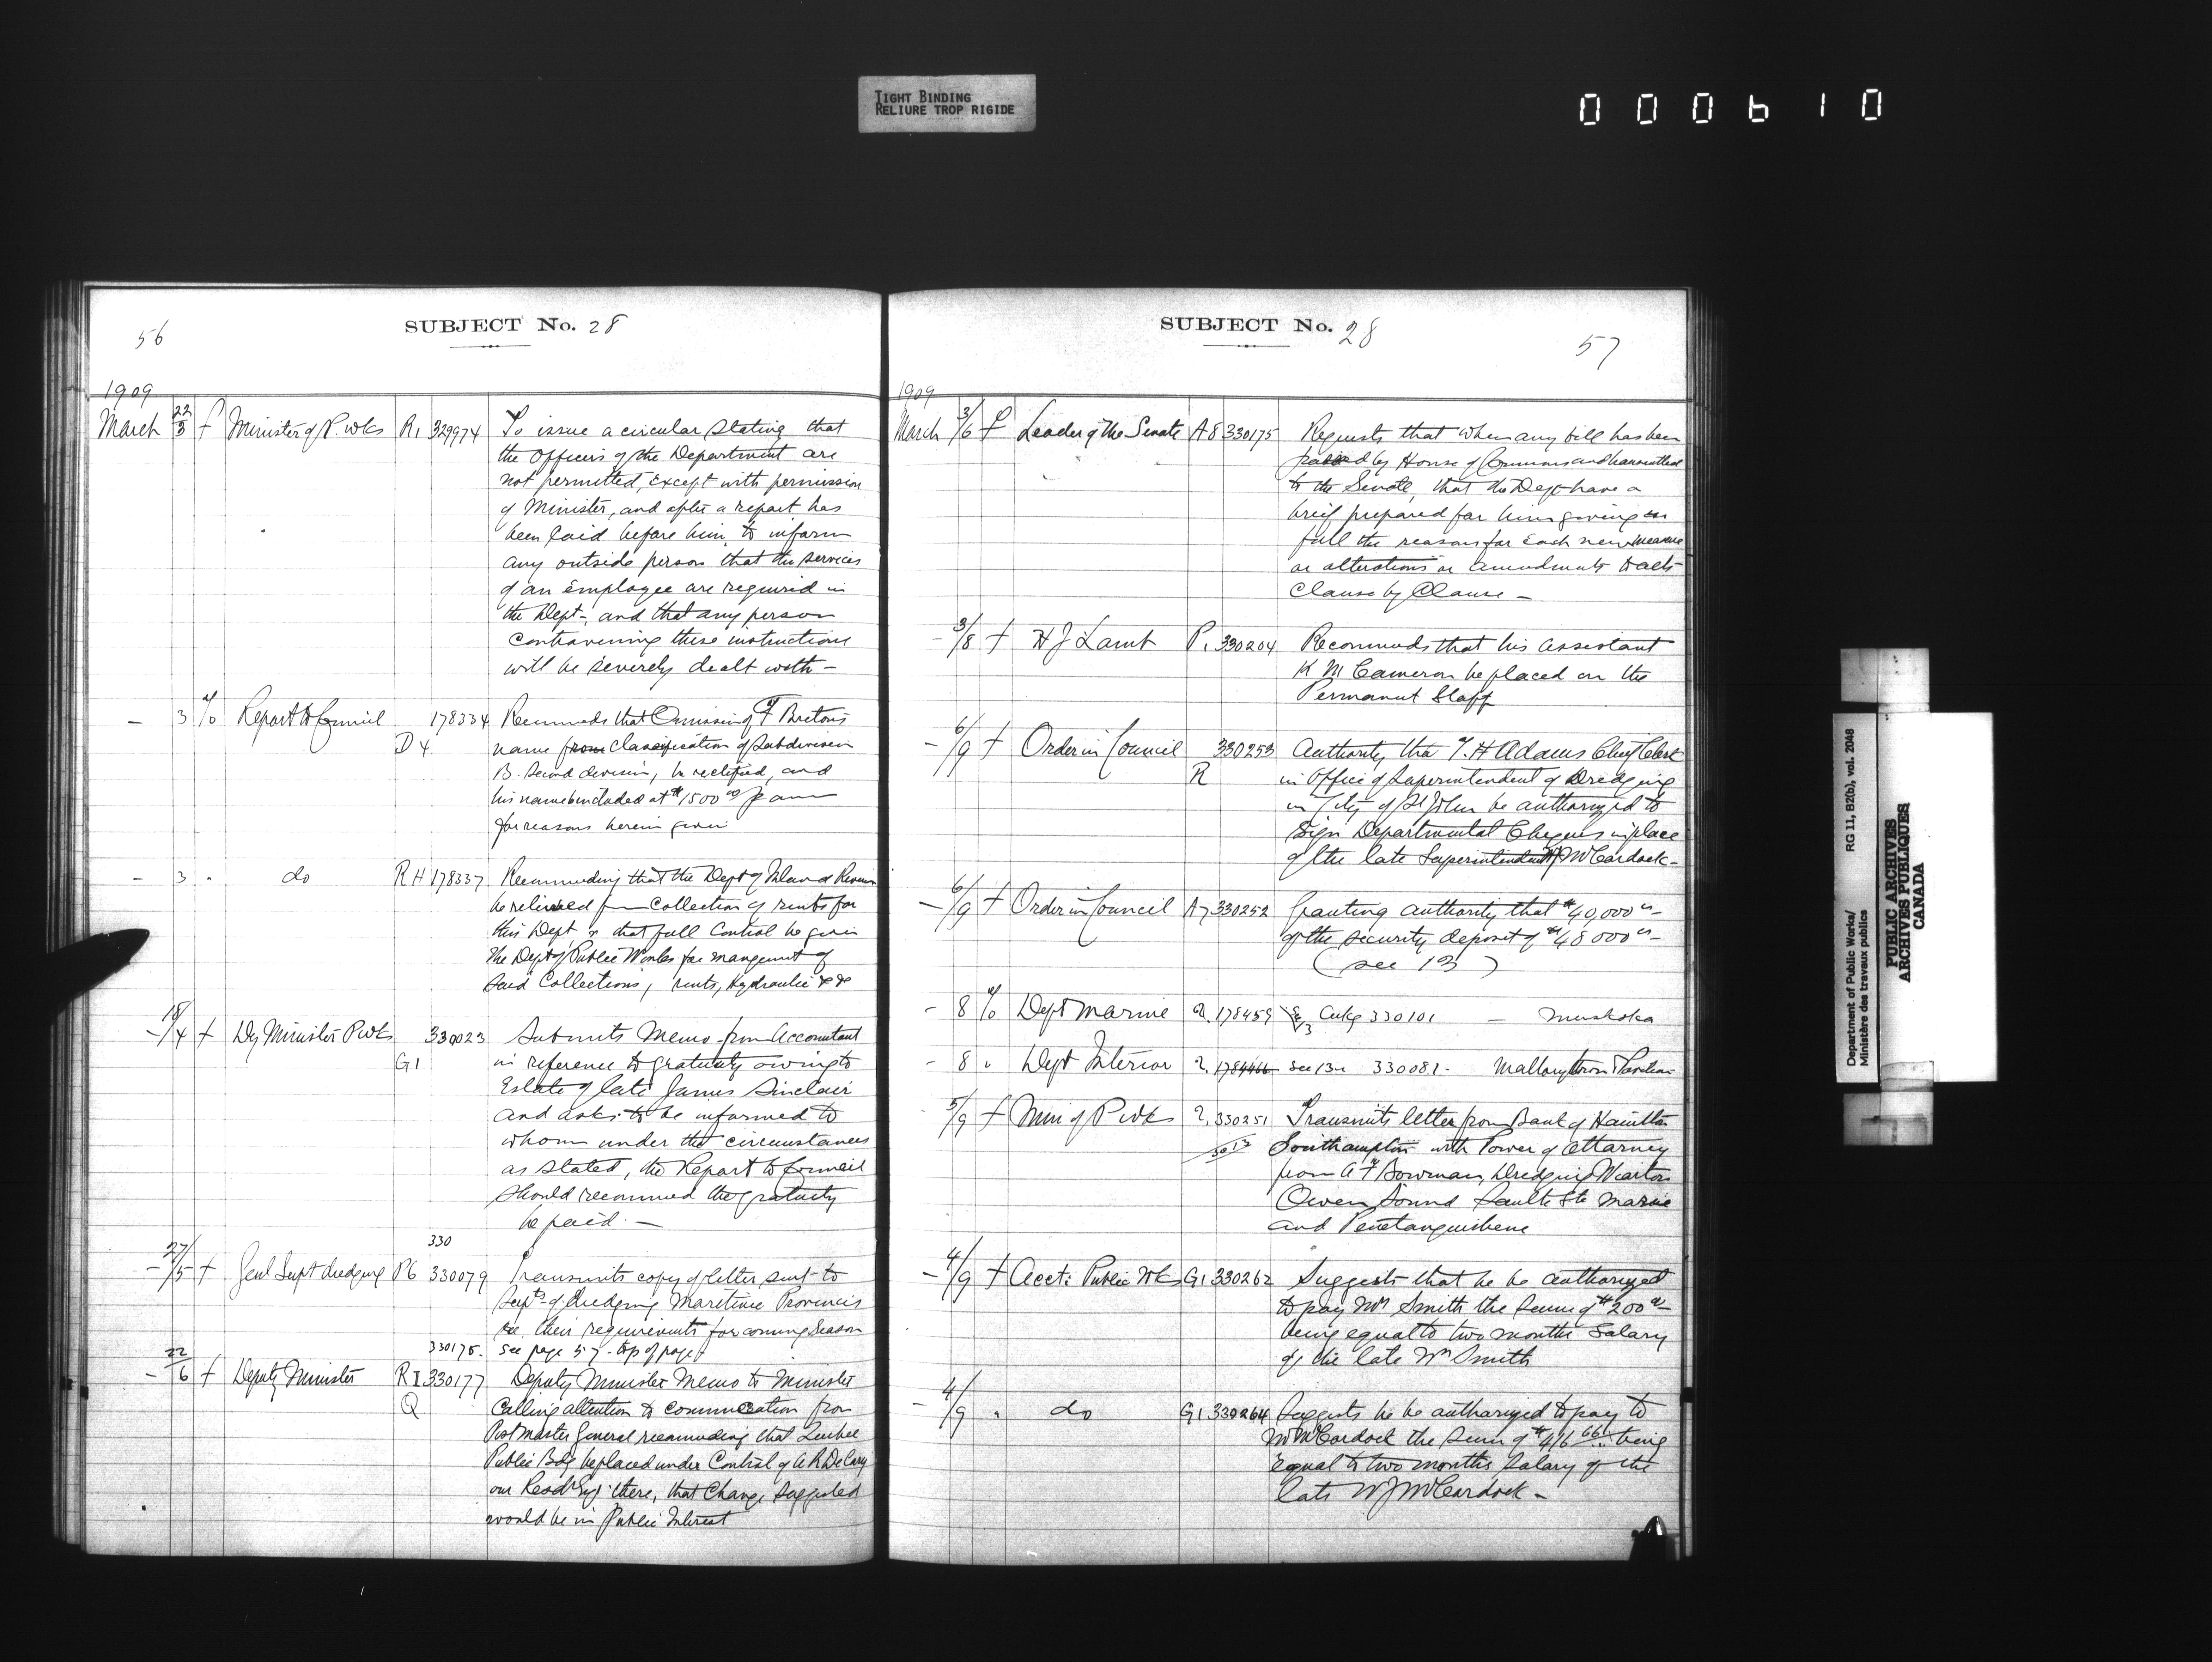 TIGHT BINDING
RELIURE TROP RIGIDE
000610
56
SUBJECT No. 28
1909
March 22/3 f Minister of P. wks R1 329974 To issue a circular stating that
the Officers of the Department are
not permitted, except with permission
of Minister, and after a report has
been laid before him, to inform
any outside person that the services
of an employee are required in
the Dept, and that any person
contravening these instructions
will be severely dealt with –
– 3 Report to Council 178334 Recommends that Omission of F Breton's
D4 name from Classification of Subdivision
B. Second division, be rectified, and
his name included at $1500 00 p ann
for reasons herein given
– 3 " do RH 178337 Recommending that the Dept of Inland Revenue
be relieved from Collection of rents for
this Dept & that full Control be given
the Dept of Public Works for mangement of
said Collections, rents, Hydraulic &c &c
– 18/4 f Dy Minister P wks 330023 Submits Memo from Accountant
G1 in reference to gratuity owing to
Estate of late James Sinclair
and asks to be informed to
whom under the circumstances
as stated, the Report to Council
should recommend the gratuity
be paid. –
330
– 27/5 f Genl Supt dredging P6 330079 Transmits copy of letter sent to
Supts of dredging Maretime Provinces
re their requirements for coming Season
330175. See page 57 - top of page
– 22/6 f Deputy Minister RI 330177 Deputy Minister Memo to Minister
Q Calling attention to communication from
Post Master General recommending that Quebec
Public Bdg be placed under Control of A R DeCary
our Resdt Eng. there, that Change Suggested
would be in Public Interest
SUBJECT No. 28
57
1909
March 3/6 f Leader of the Senate A8 330175 Requests that when any bill has been
passed by House of Commons and transmitted
to the Senate, that the Dept have a
breif prepared for him giving in
full the reasons for each new measure
or alterations or amendments to acts
Clause by Clause –
– 3/8 f H J Lamb P1 330204 Recommends that his assistant
K M Cameron be placed on the
Permanent Staff
– 6/9 f Order in Council 330253 Authority that T. H Adams Chief Clerk
R in Office of Superintendent of Dredging
in City of St John be authorized to
sign Departmental Cheques in place
of the late Superintendent McCordock –
– 6/9 f Order in Council A7 330252 Granting authority that $40,000
of the security deposit of $48000
(see 13)
– 8 Dept Marine 2. 178459 Ackg 330101 – Muskoka
– 8 " Dept Interior 2. 178466 See 13 330081 - Mallorytown Pavilion
5/9 f Min of P wks 2. 330251 Transmits letter from Bank of Hamilton
Southampton with Power of Attorney
from A F Bowman, Dredging Wiarton
Owen Sound Saulte Ste Marie
and Penetanguishene
– 4/9 f Acct: Public Wks G1 330262 Suggests that he be authorized
to pay Mrs Smith the sum of $200
being equal to two months Salary
of the late Wm Smith
– 4/9 " do G1 330264 Suggests he be authorized to pay to
Mrs McCordock the Sum of $416 66 being
Equal to two months Salary of the
late W J McCordock –
Department of Public Works/ RG 11, B2(b), vol. 2048
Ministère des travaux publics
PUBLIC ARCHIVES
ARCHIVES PUBLIQUES
CANADA